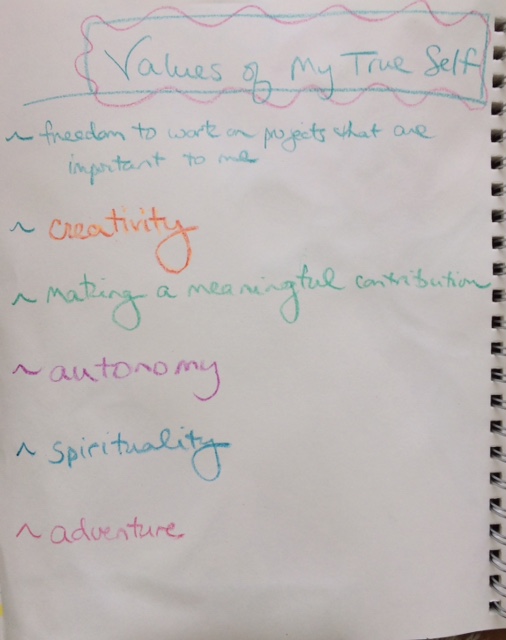 Values of My True Self
~ freedom to work on projects that are
important to me
~ creativity
~ making a meaningful contribution
~ autonomy
~ spirituality
~ adventure